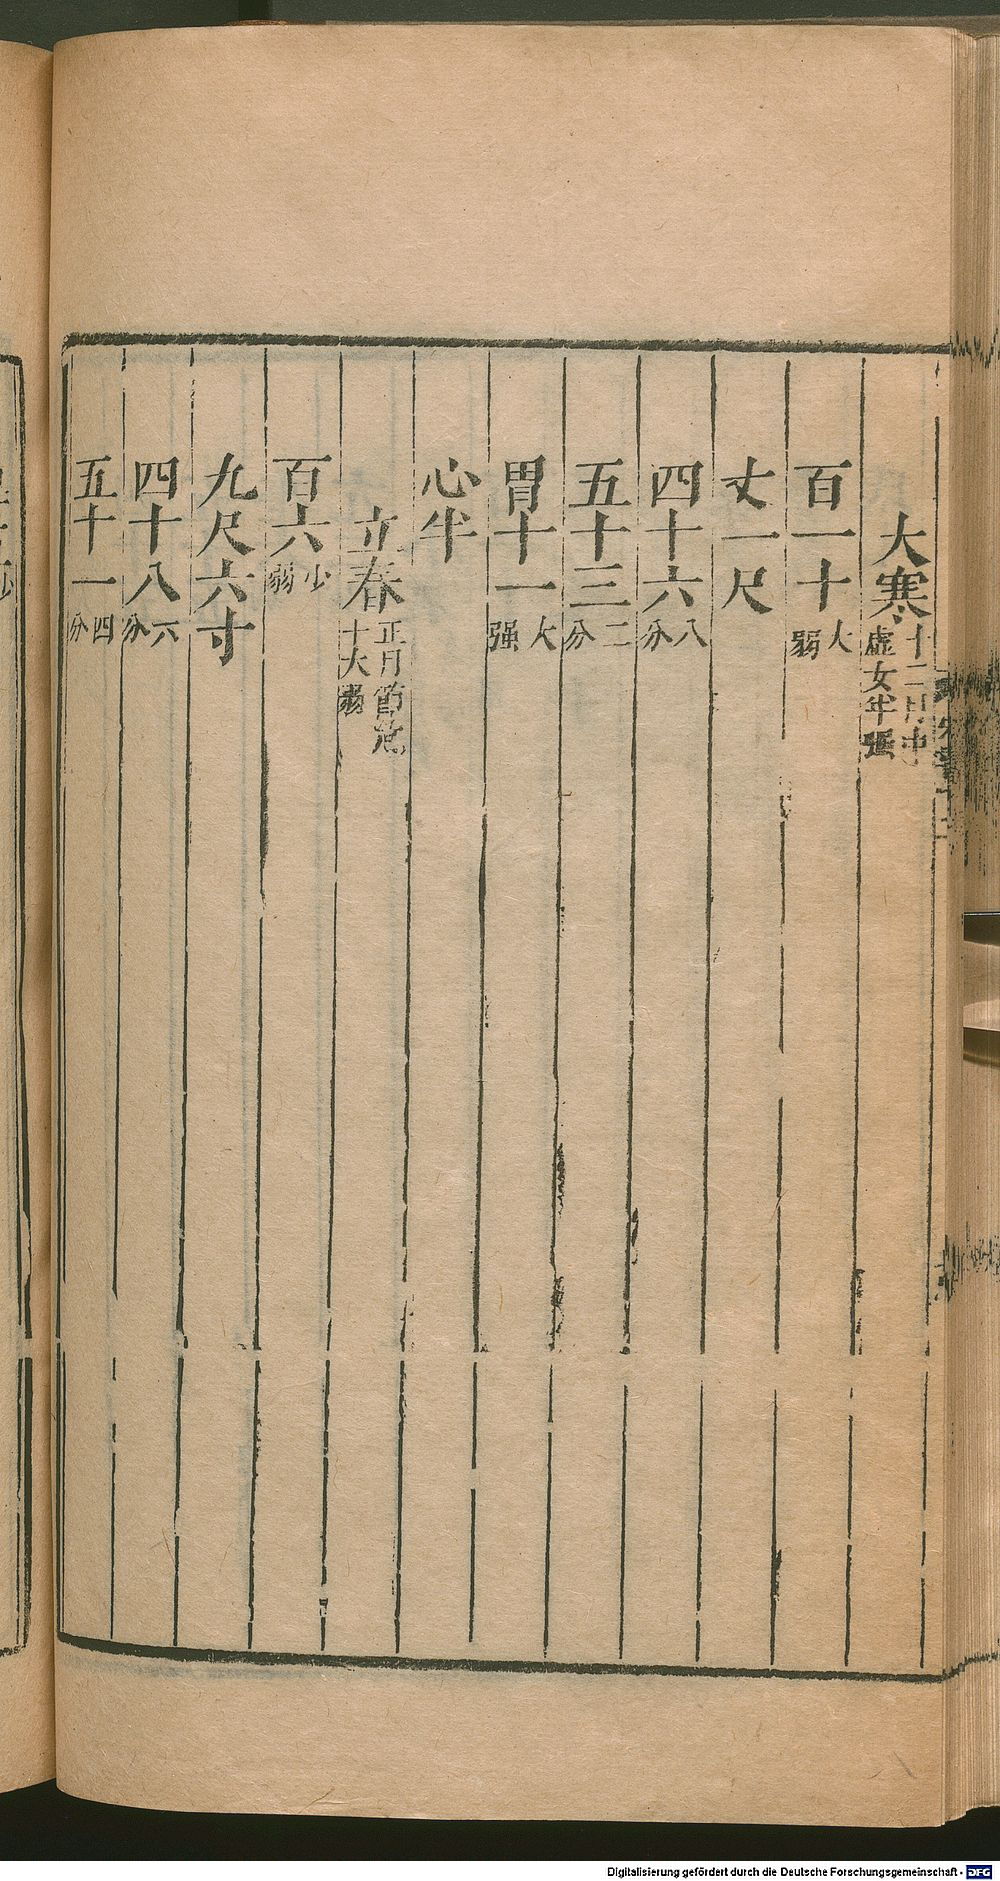 大寒十二月中虛女半强
百一十大弱
丈一尺
四十六八分
五十三二分
胃十一大强
心半
立春正月節危十大弱
百六少弱
九尺六寸
四十八六分
五十一四分
Digitalisierung gefördert durch die Deutsche Forschungsgemeinschaft - DFG